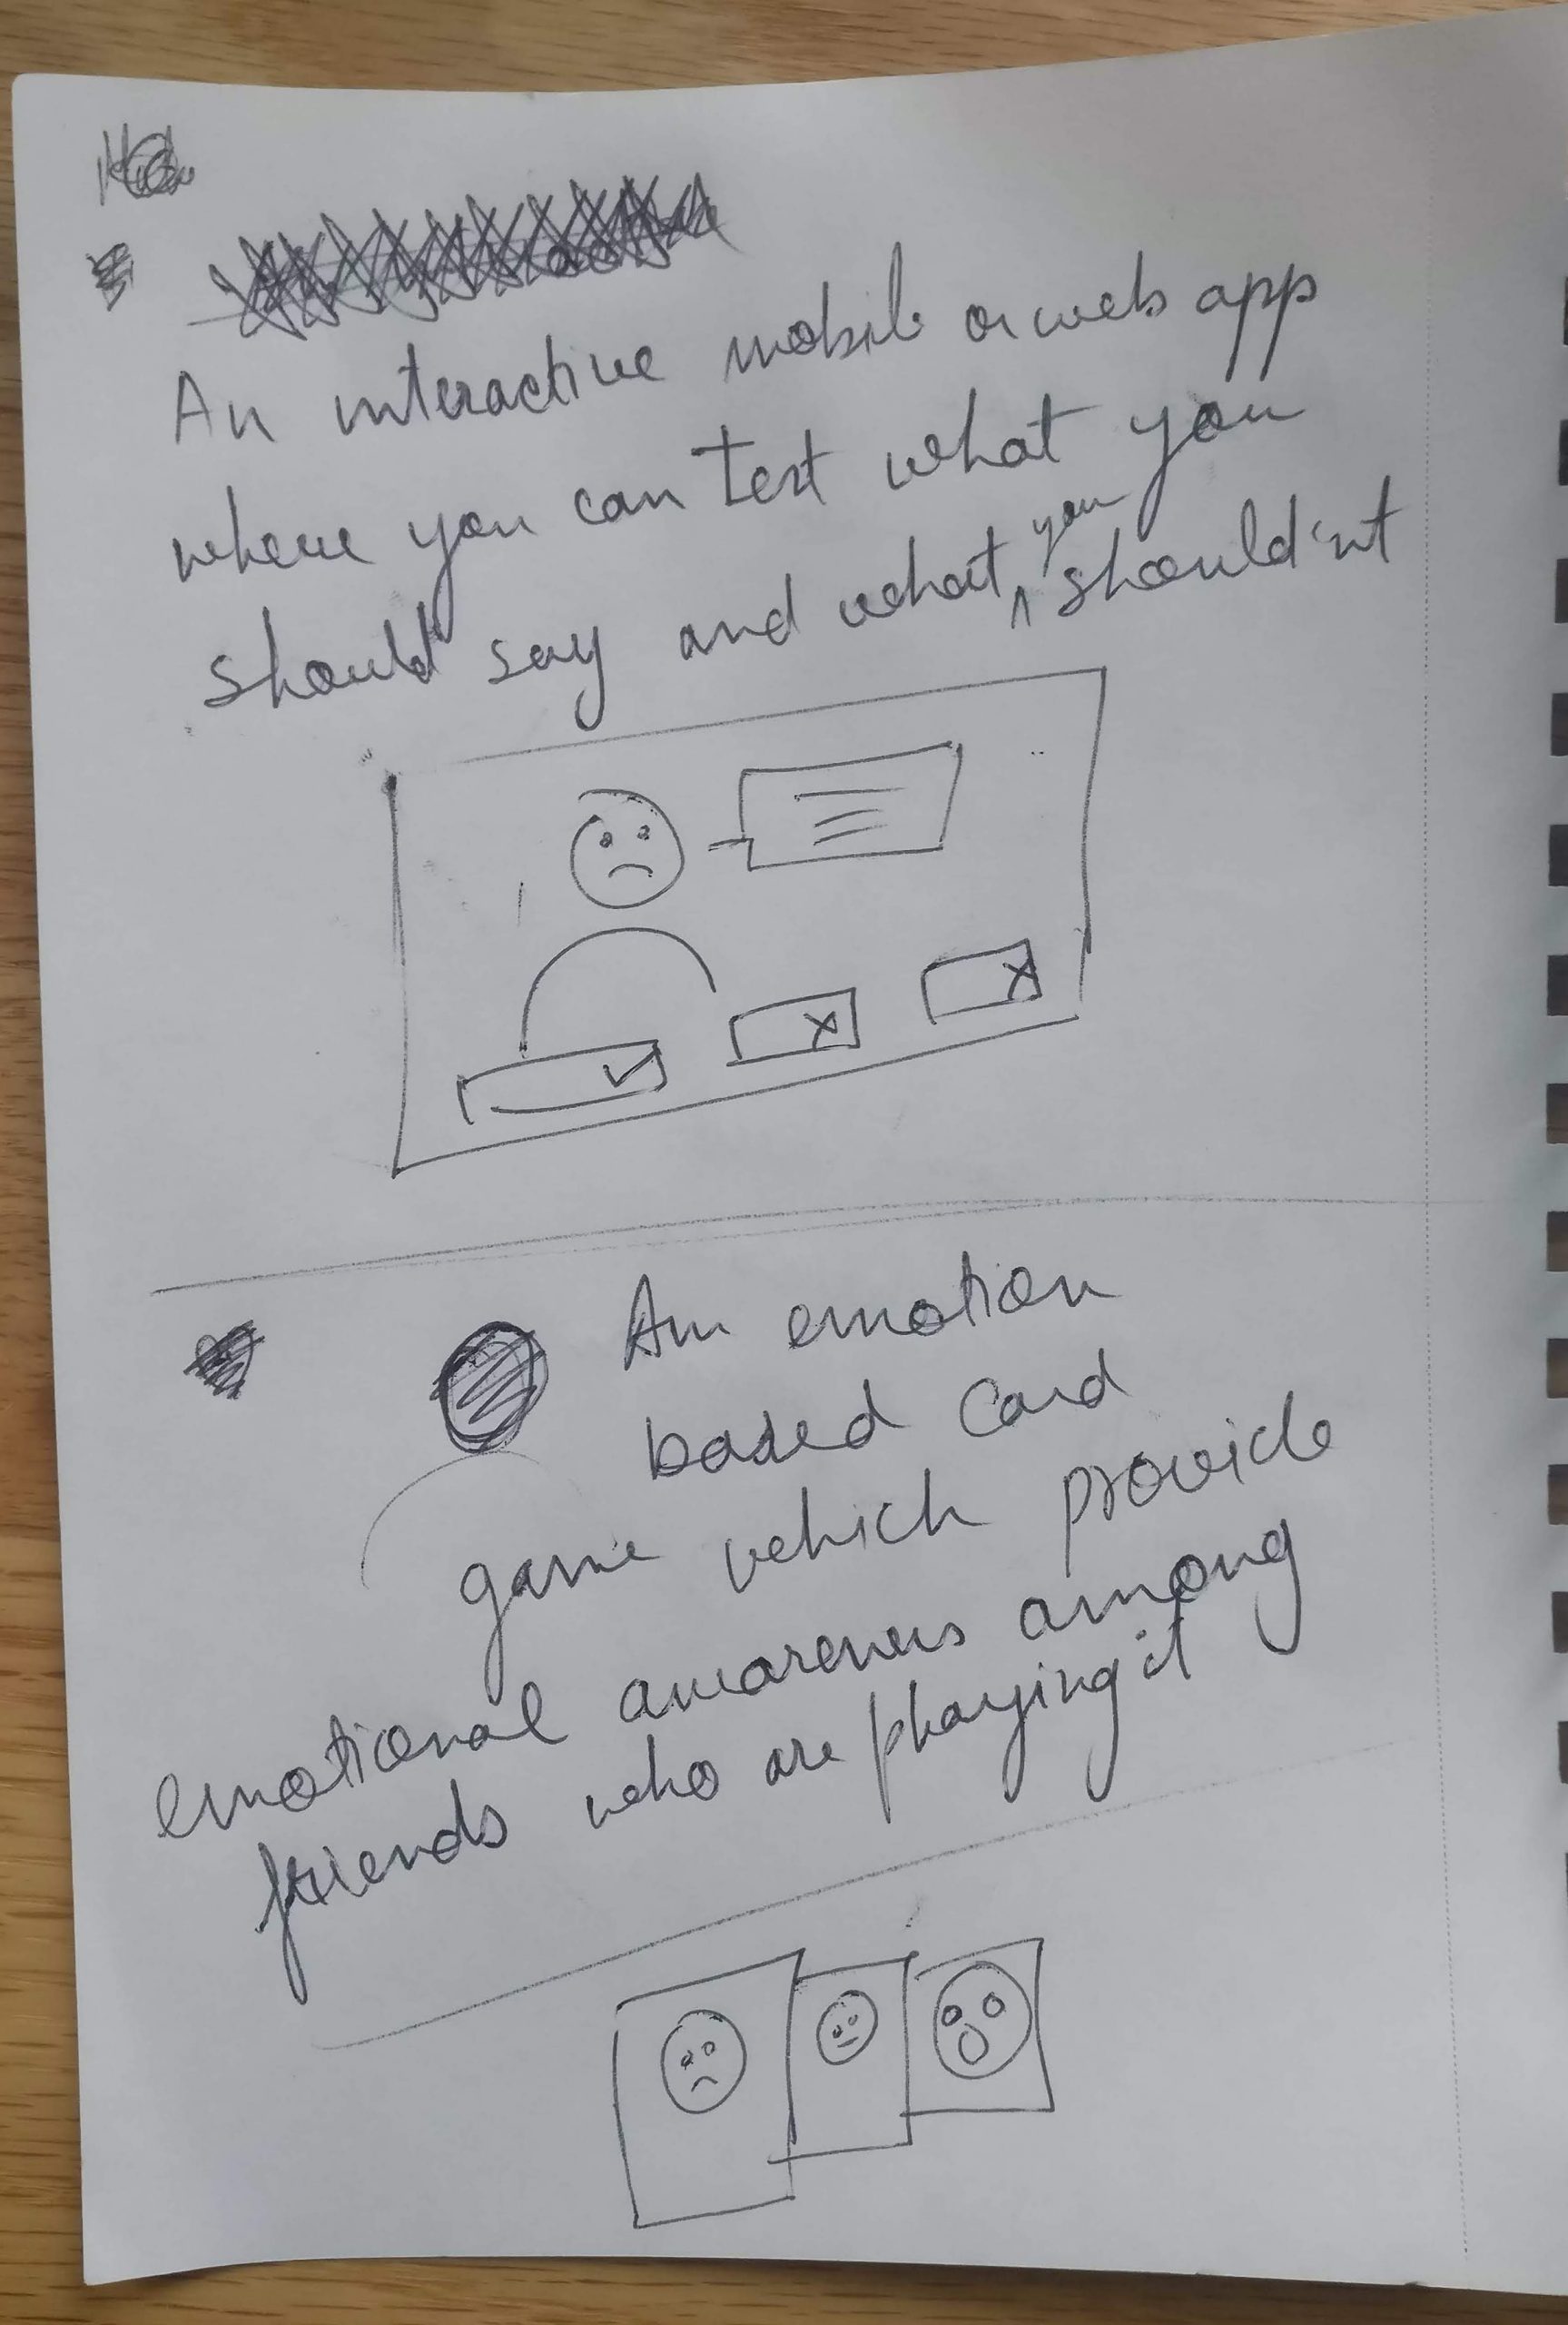 An interactive mobile or web app
where you can test what you
should say and what you should'nt
An emotion
based card
game which provide
emotional awareness among
friends who are playing it